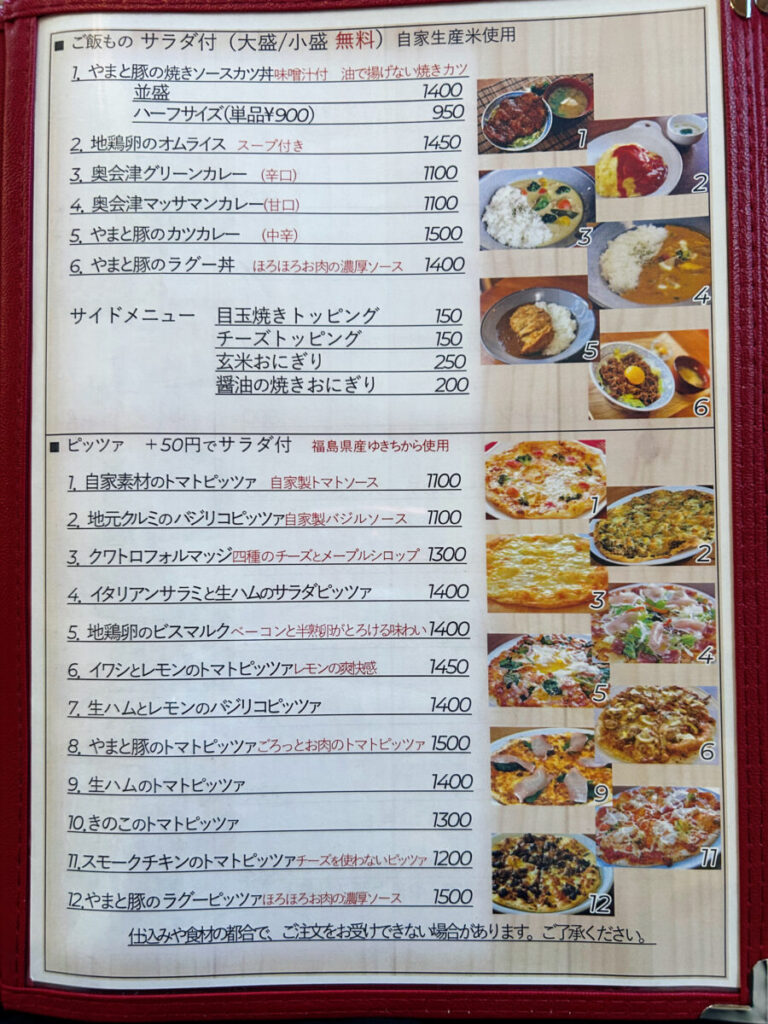 ■ ご飯もの サラダ付（大盛/小盛 無料）自家生産米使用
1. やまと豚の焼きソースカツ丼 味噌汁付 油で揚げない焼きカツ
並盛 1400
ハーフサイズ(単品¥900) 950
2. 地鶏卵のオムライス スープ付き 1450
3. 奥会津グリーンカレー (辛口) 1100
4. 奥会津マッサマンカレー(甘口) 1100
5. やまと豚のカツカレー (中辛) 1500
6. やまと豚のラグー丼 ほろほろお肉の濃厚ソース 1400
サイドメニュー 目玉焼きトッピング 150
チーズトッピング 150
玄米おにぎり 250
醤油の焼きおにぎり 200
1
2
3
4
5
6
■ ピッツァ +50円でサラダ付 福島県産ゆきちから使用
1. 自家素材のトマトピッツァ 自家製トマトソース 1100
2. 地元クルミのバジリコピッツァ 自家製バジルソース 1100
3. クワトロフォルマッジ 四種のチーズとメープルシロップ 1300
4. イタリアンサラミと生ハムのサラダピッツァ 1400
5. 地鶏卵のビスマルク ベーコンと半熟卵がとろける味わい 1400
6. イワシとレモンのトマトピッツァ レモンの爽快感 1450
7. 生ハムとレモンのバジリコピッツァ 1400
8. やまと豚のトマトピッツァ ごろっとお肉のトマトピッツァ 1500
9. 生ハムのトマトピッツァ 1400
10. きのこのトマトピッツァ 1300
11. スモークチキンのトマトピッツァ チーズを使わないピッツァ 1200
12. やまと豚のラグーピッツァ ほろほろお肉の濃厚ソース 1500
1
2
3
4
5
6
9
11
12
仕込みや食材の都合で、ご注文をお受けできない場合があります。ご了承ください。